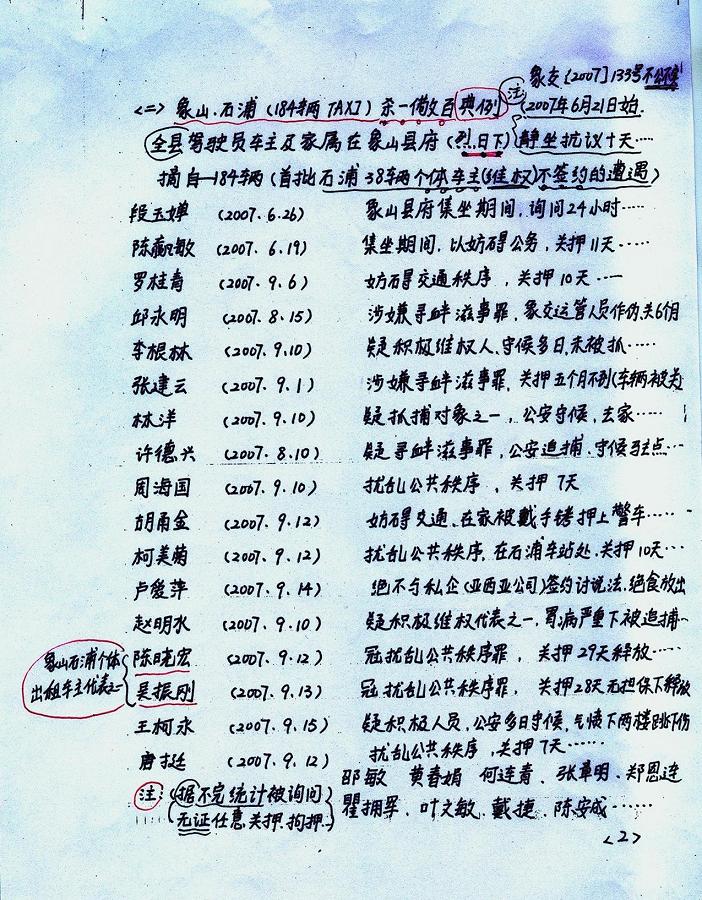 象交〔2007〕133号不公不
<二> 象山.石浦 (184辆 TAXI) 杀一儆百典例 注 (2007年6月21日始.
全县驾驶员车主及家属在象山县府 (烈.日下) 静坐抗议十天……
摘自—184辆 (首批石浦38辆个体车主(维权)不签约的遭遇)
段玉婵 (2007.6.26) 象山县府集坐期间,询问24小时……
陈赢敏 (2007.6.19) 集坐期间,以妨碍公务,关押11天……
罗桂青 (2007.9.6) 妨碍交通秩序,关押10天……
邱永明 (2007.8.15) 涉嫌寻衅滋事罪,象交运管人员作伪,关6个月
李根林 (2007.9.10) 疑积极维权人,守候多日,未被抓……
张建云 (2007.9.1) 涉嫌寻衅滋事罪,关押五个月不到(车辆被卖
林洋 (2007.9.10) 疑抓捕对象之一,公安守候,去家……
许德兴 (2007.8.10) 疑寻衅滋事罪,公安追捕.守候驻点…
周海国 (2007.9.10) 扰乱公共秩序,关押7天
胡甬金 (2007.9.12) 妨碍交通.在家被戴手铐押上警车……
柯美菊 (2007.9.12) 扰乱公共秩序,在石浦车站处.关押10天…
卢爱萍 (2007.9.14) 绝不与私企(亚西亚公司)签约讨说法.绝食放出
赵明水 (2007.9.10) 疑积极维权代表之一,胃病严重下被追捕…
象山石浦个体出租车主代表之一
陈晓宏 (2007.9.12) 冠扰乱公共秩序罪,关押29天释放……
吴振刚 (2007.9.13) 冠扰乱公共秩序罪,关押28天无担保下释放
王柯永 (2007.9.15) 疑积极人员,公安多日守候,气愤下两楼跳下伤
唐挺 (2007.9.12) 扰乱公共秩序,关押7天……
注:(据不完统计被询问 邵敏 黄春娟 何连青、张章明、郑恩连
无证任意.关押.拘押…) 瞿拥军、叶文敏、戴捷、陈安成……
<2>